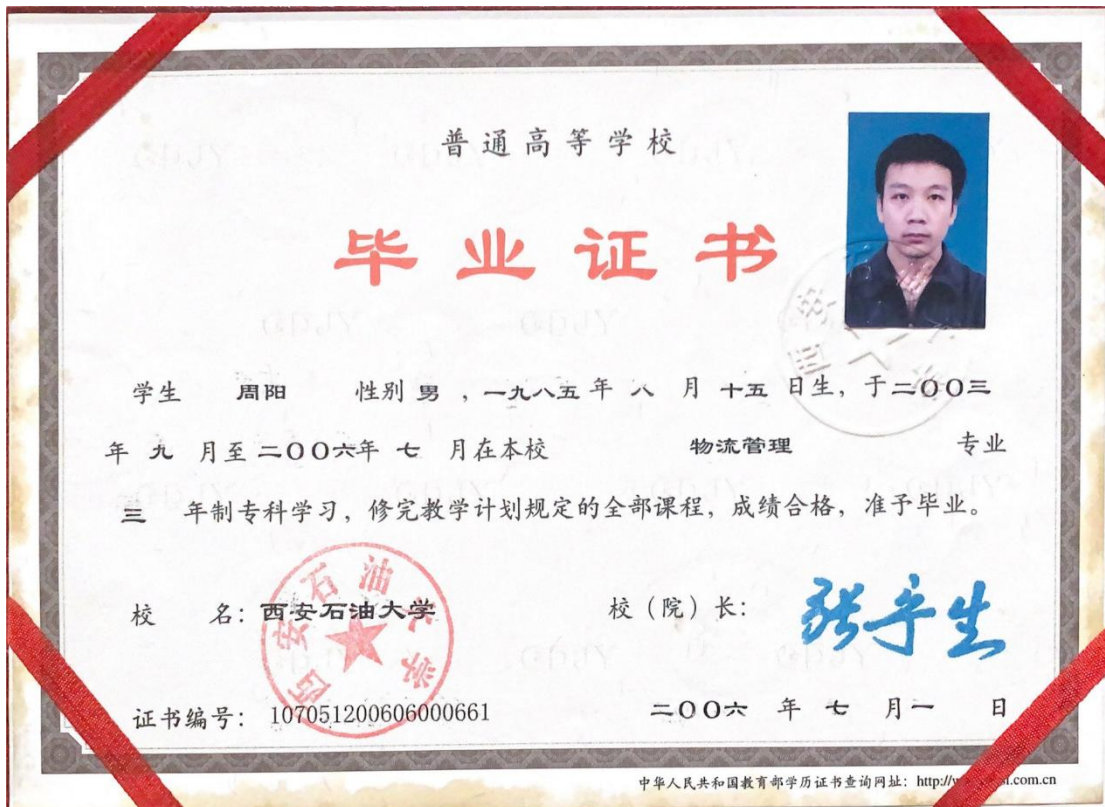 普通高等学校
毕业证书
学生 周阳 性别 男 ，一九八五 年 八 月 十五 日生，于二〇〇三
年 九 月至 二〇〇六年 七 月在本校 物流管理 专业
三 年制专科学习，修完教学计划规定的全部课程，成绩合格，准予毕业。
校 名：西安石油大学 校（院）长：
西安石油大学
证书编号： 107051200606000661 二〇〇六 年 七 月一 日
中华人民共和国教育部学历证书查询网址：